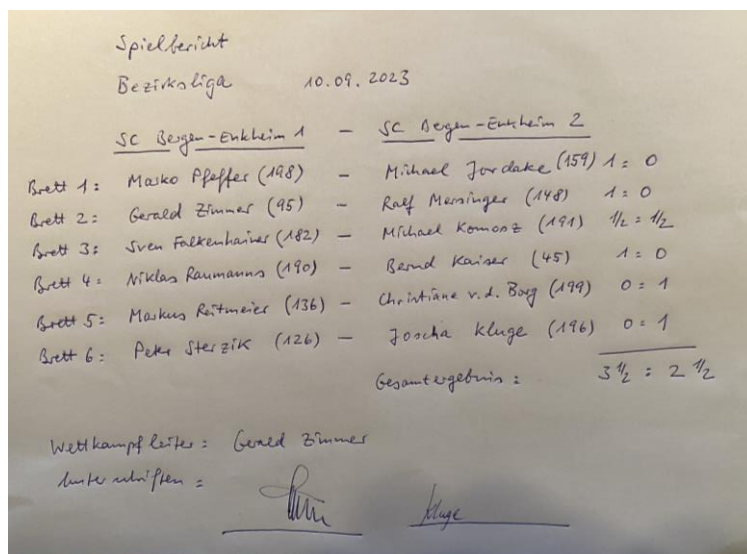 Spielbericht
Bezirksliga 10.09.2023
SC Bergen-Enkheim 1 – SC Bergen-Enkheim 2
Brett 1: Marko Pfeffer (198) – Michael Jordake (159) 1 : 0
Brett 2: Gerald Zimmer (95) – Ralf Mensinger (148) 1 : 0
Brett 3: Sven Falkenhainer (182) – Michael Komorz (191) 1/2 : 1/2
Brett 4: Niklas Raumanns (190) – Bernd Kaiser (45) 1 : 0
Brett 5: Markus Reitmeier (136) – Christiane v.d. Borg (199) 0 : 1
Brett 6: Peter Sterzik (126) – Joscha Kluge (196) 0 : 1
Gesamtergebnis : 3 1/2 : 2 1/2
Wettkampfleiter : Gerald Zimmer
Unterschriften :
Kluge